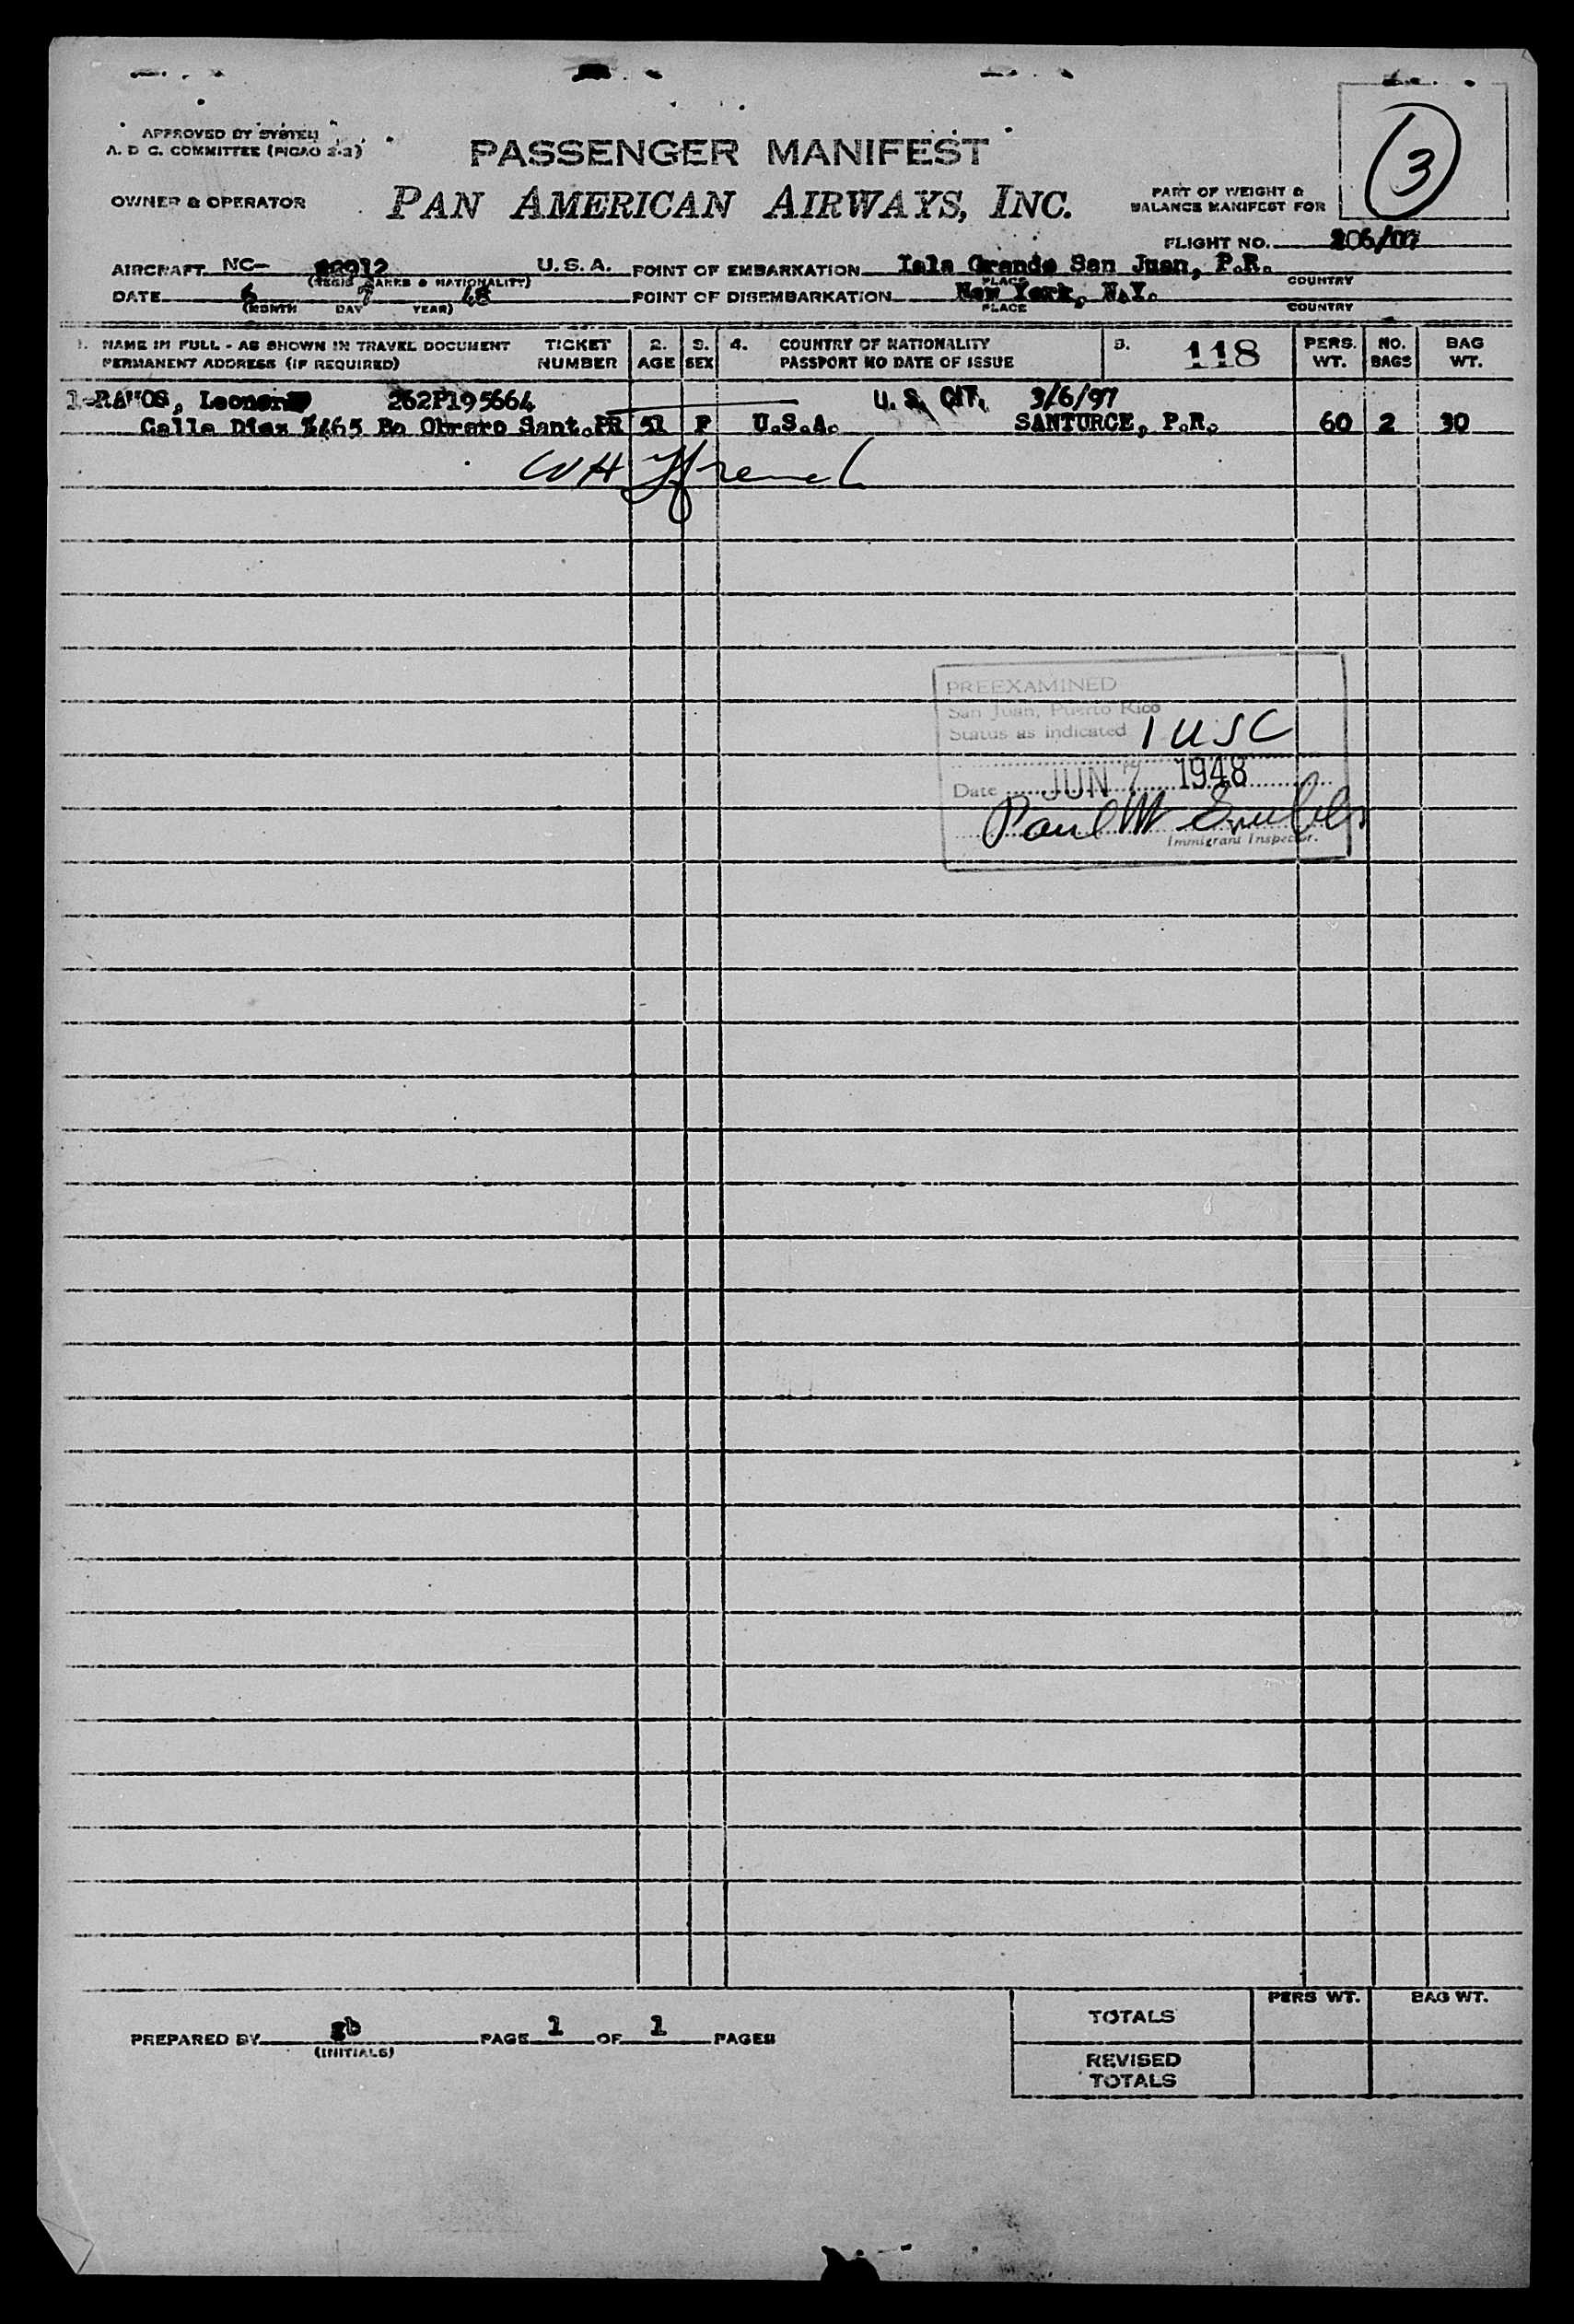 APPROVED BY SYSTEM
A. D C. COMMITTEE (PICAO 2-2)
PASSENGER MANIFEST
3
OWNER & OPERATOR
PAN AMERICAN AIRWAYS, INC.
PART OF WEIGHT &
BALANCE MANIFEST FOR
FLIGHT NO. 206/07
AIRCRAFT NC- U. S. A. POINT OF EMBARKATION Isla Grande San Juan, P.R.
(REGIS MARKS & NATIONALITY) PLACE COUNTRY
DATE 6 7 48 POINT OF DISEMBARKATION New York, N.Y.
(MONTH DAY YEAR) PLACE COUNTRY
1. NAME IN FULL - AS SHOWN IN TRAVEL DOCUMENT TICKET 2. 3. 4. COUNTRY OF NATIONALITY 5. 118 PERS. NO. BAG
PERMANENT ADDRESS (IF REQUIRED) NUMBER AGE SEX PASSPORT NO DATE OF ISSUE WT. BAGS WT.
1-RAMOS, Leonor 262P195664 U. S. CIT. 3/6/97
Calle Diaz #465 Bo Obrero Sant.PR 51 F U.S.A. SANTURCE, P.R. 60 2 30
WH Ffrench
PREEXAMINED
San Juan, Puerto Rico
Status as indicated 1 USC
Date JUN 7 1948
Paul W
Immigrant Inspector.
PERS WT. BAG WT.
TOTALS
PREPARED BY gb PAGE 1 OF 1 PAGES
(INITIALS)
REVISED
TOTALS